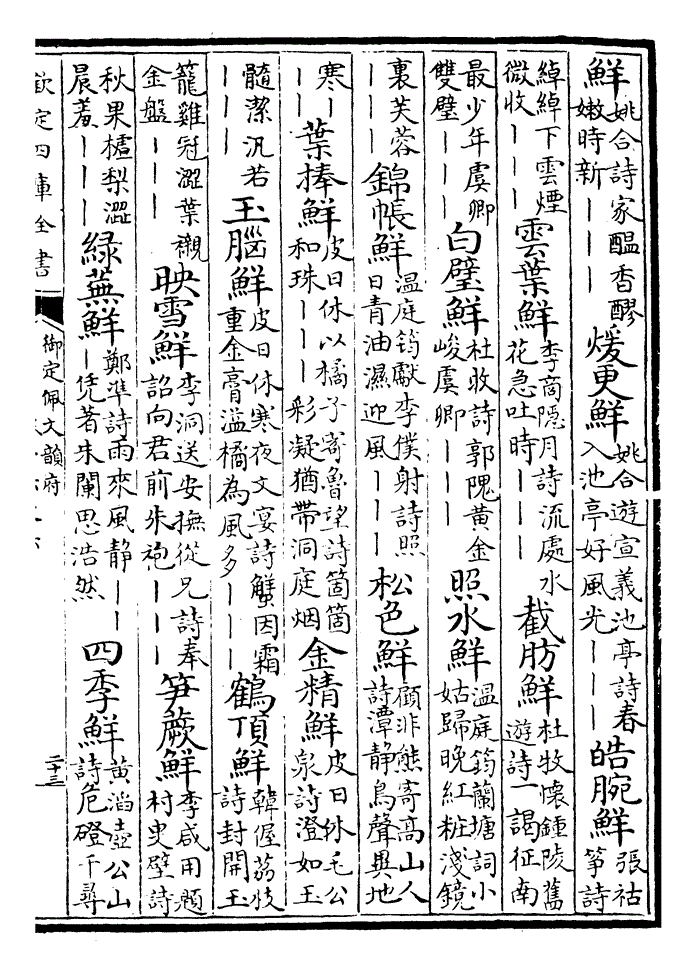 鮮姚合詩家醞香醪嫩時新｜｜｜煖更鮮姚合遊宣義池亭詩春入池亭好風光｜｜｜皓腕鮮張祜箏詩
綽綽下雲煙微收｜｜｜雲葉鮮李商隠月詩流處水花急吐時｜｜｜截肪鮮杜牧懷鍾陵舊遊詩一謁征南
最少年虞卿雙璧｜｜｜白璧鮮杜牧詩郭隗黃金峻虞卿｜｜｜照水鮮温庭筠蘭塘詞小姑歸晚紅粧淺鏡
裏芙蓉｜｜｜錦帳鮮温庭筠獻李僕射詩照日青油濕迎風｜｜｜松色鮮顧非熊寄高山人詩潭静鳥聲異地
寒｜葉捧鮮皮日休以橘子寄魯望詩箇箇和珠｜｜｜彩凝猶帶洞庭烟金精鮮皮日休毛公泉詩澄如玉
髓潔汎若｜｜｜玉腦鮮皮日休寒夜文宴詩蟹因霜重金膏溢橘為風多｜｜｜鶴頂鮮韓偓荔枝詩封開玉
籠雞冠澀葉襯金盤｜｜｜映雪鮮李洞送安撫從兄詩奉詔向君前朱袍｜｜｜笋蕨鮮李咸用題村叟壁詩
秋果樝梨澀晨羞｜｜｜緑蕪鮮鄭凖詩雨來風静｜｜｜凭著朱闌思浩然四季鮮黃滔壺公山詩危磴千尋
欽定四庫全書
御定佩文韻府
二十三